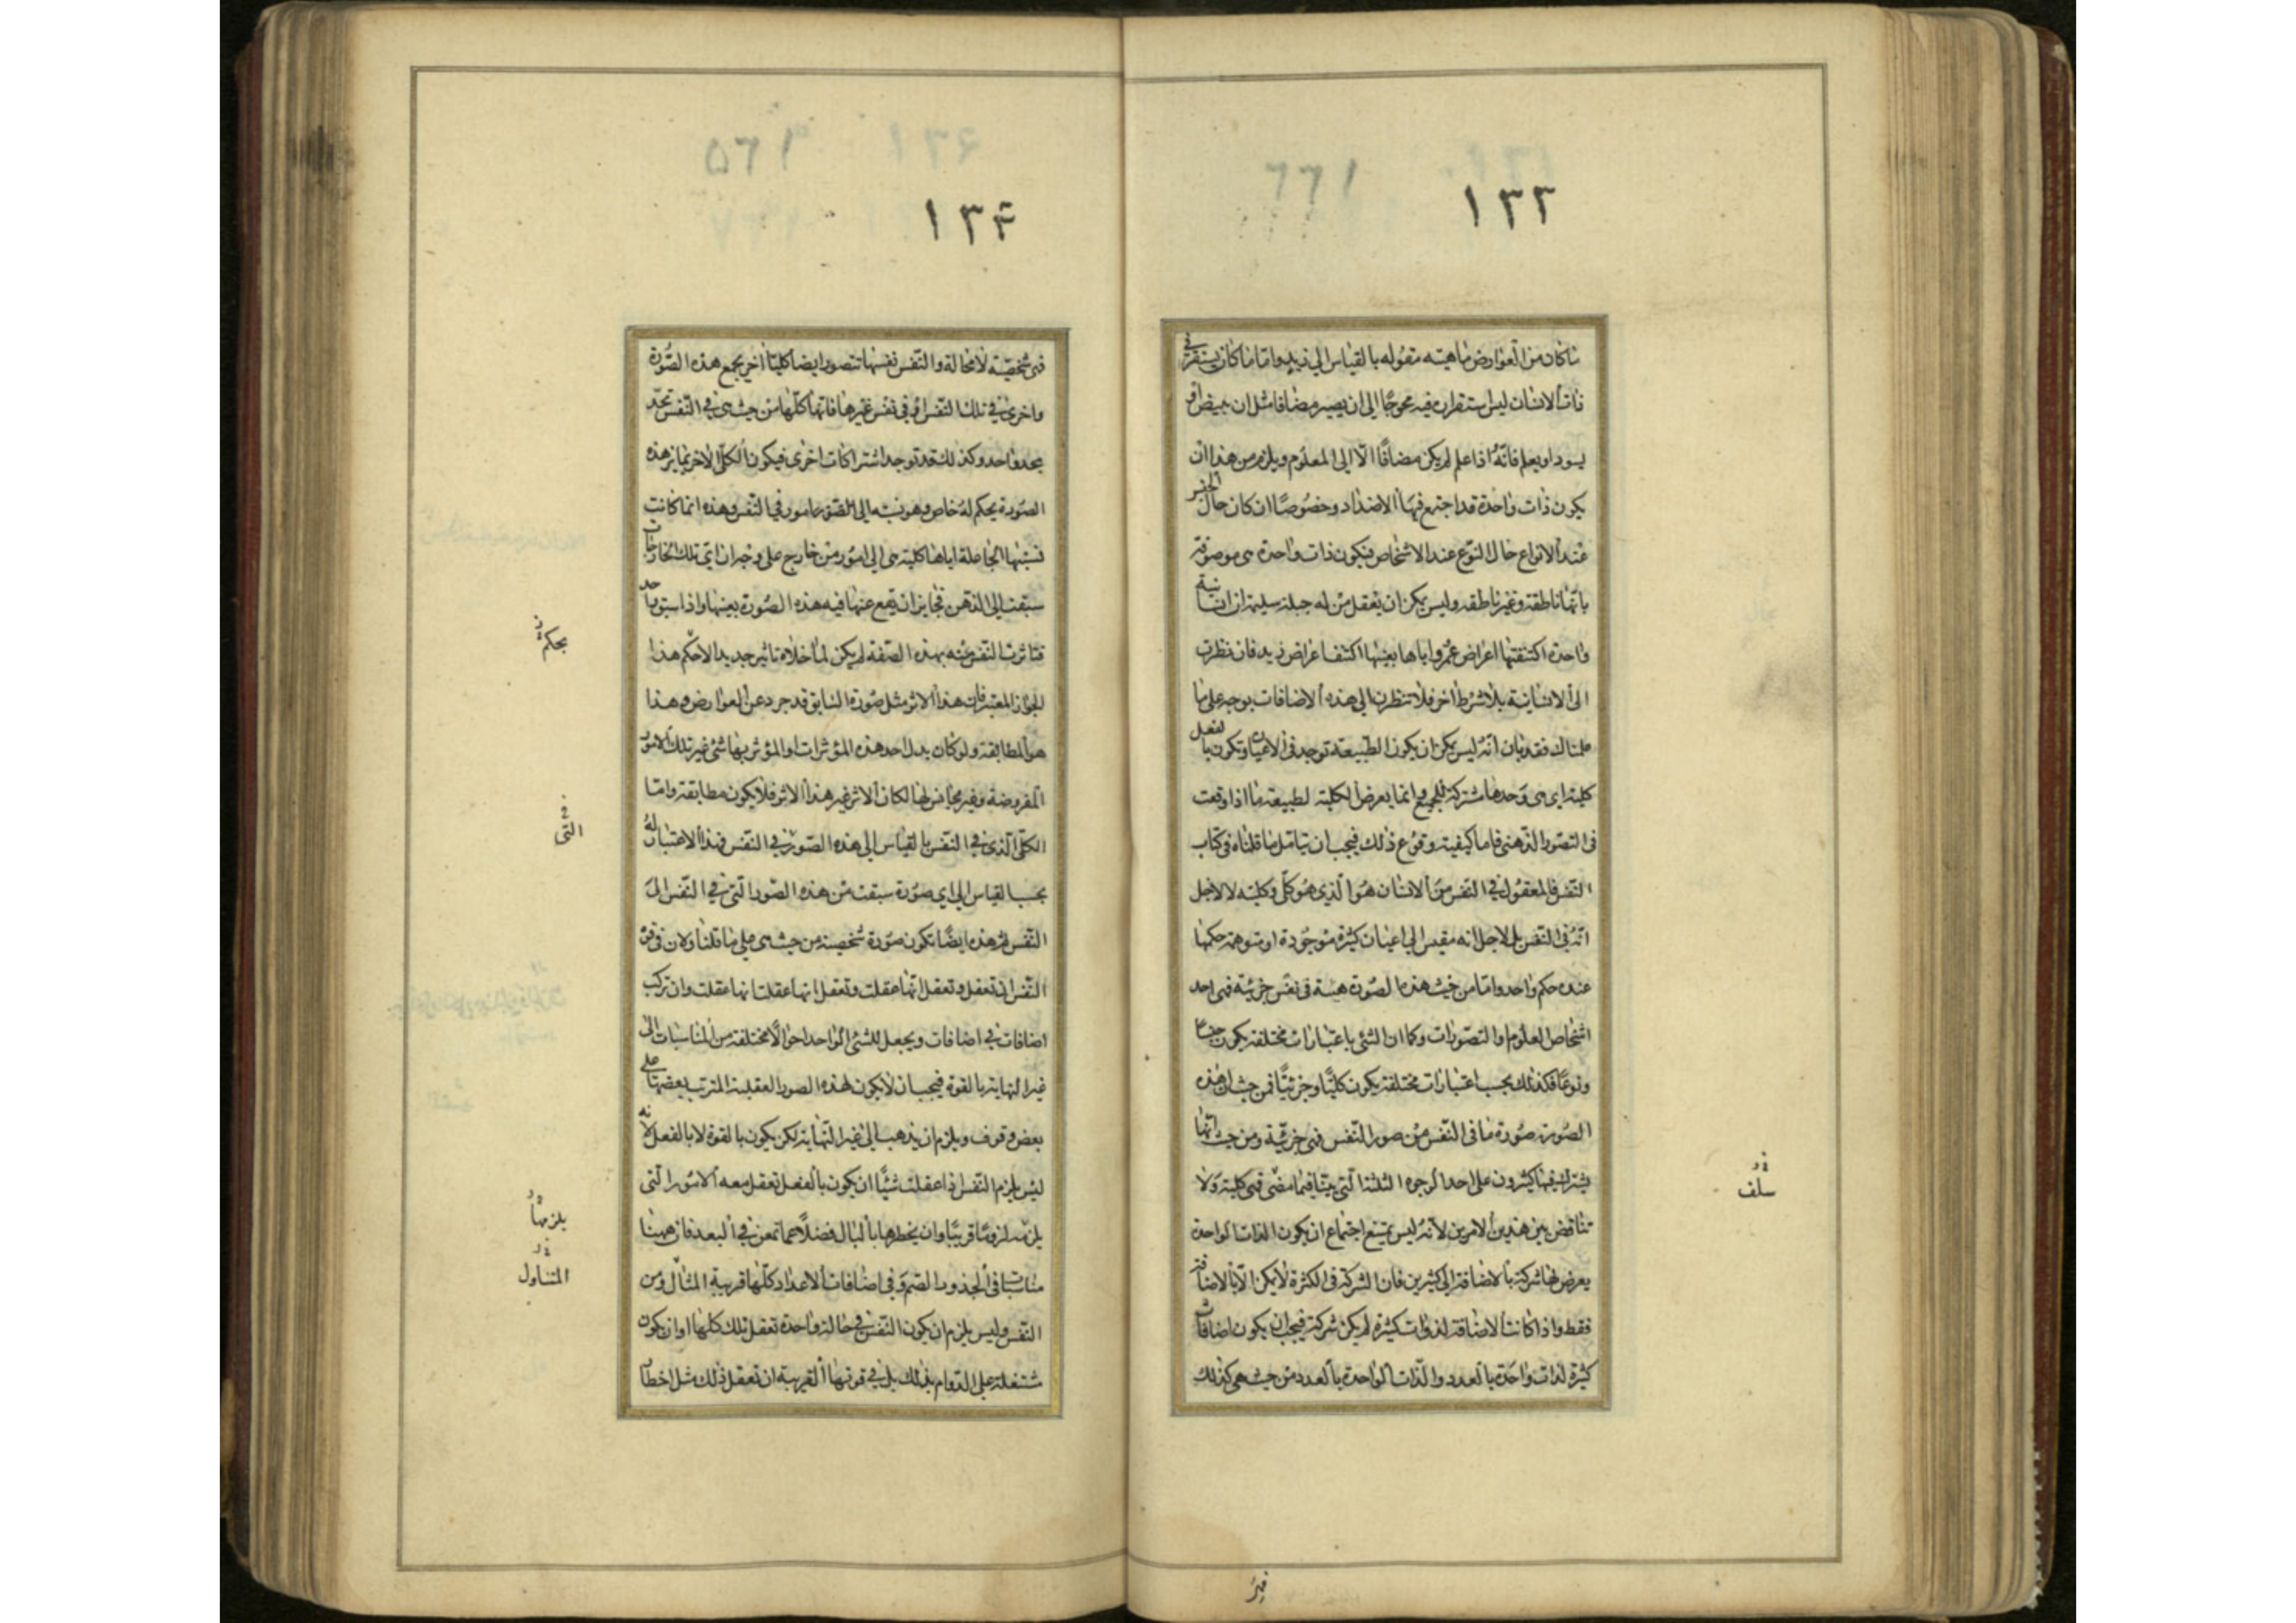 ١٣٣
١٦٦
ما كان من العوارض ماهيته مقوله بالقياس الى زيد واما ما كان يستقر فى
ذات الانسان ليس استقراره فيه محوجا الى ان يصير مضافا مثل ان يبيض او
يسود او يعلم فانه اذا علم لم يكن مضافا الا الى المعلوم ويلزم من هذا ان
يكون ذات واحدة قد اجتمع فيها الاضداد وخصوصا ان كان حال الجنس
عند الانواع حال النوع عند الاشخاص فيكون ذات واحدة هى موصوفة
بانها ناطقة وغير ناطقه وليس يمكن ان يعقل من له جبلة سليمة ان انسانية
واحدة اكتنفتها اعراض عمرو واياها بعينها اكتنف اعراض زيد فان نظرت
الى الانسانية بلا شرط اخر فلا تنظرن الى هذه الاضافات بوجه على ما
علمناك فقد بان انه ليس يمكن ان يكون الطبيعة توجد فى الاعيان وتكون بالفعل
كلية اى هى وحدها مشتركة للجميع وانما يعرض الكلية لطبيعة ما اذا وقعت
فى التصور الذهنى فاما كيفية وقوع ذلك فيجب ان يتامل ما قلناه فى كتاب
النفس فالمعقول فى النفس من الانسان هو الذى هو كلى وكليته لا لاجل
انه فى النفس بل لاجل انه مقيس الى اعيان كثيرة موجودة او متوهمة حكمها
عنده حكم واحد واما من حيث هذه الصورة هيئة فى نفس جزئية فهى احد
اشخاص العلوم والتصورات وكما ان الشئ باعتبارات مختلفة يكون جنسا
ونوعا فكذلك بحسب اعتبارات مختلفة يكون كليا وجزئيا فمن حيث ان هذه
الصورة صورة ما فى النفس من صور النفس فهى جزئية ومن حيث انها
يشترك فيها كثيرون على احد الوجوه الثلثة التى بينا فيما مضى فهى كلية ولا
تناقض بين هذين الامرين لانه ليس يمتنع اجتماع ان يكون الذات الواحدة
يعرض لها شركة بالاضافة الى كثيرين فان الشركة فى الكثرة لا يمكن الا بالاضافة
فقط واذا كانت الاضافة لذوات كثيرة لم يكن شركة فيجب ان يكون اضافات
كثيرة لذات واحدة بالعدد والذات الواحدة بالعدد من حيث هى كذلك
سلف
فهى
١٣۴
١٦۵
فهى شخصية لا محالة والنفس نفسها تتصور ايضا كليا اخر يجمع هذه الصورة
واخرى فى تلك النفس او فى نفس غيرها فانها كلها من حيث هى فى النفس تحد
بحد واحد وكذلك قد توجد اشتراكات اخرى فيكون الكلى الاخر يمايز هذه
الصورة بحكم له خاص وهو نسبته الى امور فى النفس وهذه انما كانت
نسبتها الجاعلة اياها كلية هى الى امور من خارج على وجه ان اى تلك الخارجات
سبقت الى الذهن فجايز ان يقع عنها فيه هذه الصورة بعينها واذا سبق واحد
فتاثرت النفس عنه بهذه الصفة لم يكن لما خلاه تاثير جديد الا حكم هذا
الجواز المعتبر فان هذا الاثر مثل صورة السابق قد جرد عن العوارض وهذا
هو المطابقة ولو كان بدل احد هذه المؤثرات او المؤثر بها شئ غير تلك الامور
المفروضة وغير مجانس لها لكان الاثر غير هذا الاثر فلا يكون مطابقة واما
الكلى الذى فى النفس بالقياس الى هذه الصور فى النفس فهذا الاعتبار له
بحسب القياس الى اى صورة سبقت من هذه الصور التى فى النفس الى
النفس ثم هذه ايضا تكون صورة شخصية من حيث هى على ما قلنا ولان فى قوة
النفس ان تعقل وتعقل انها عقلت وتعقل انها عقلت انها عقلت وان تركب
اضافات فى اضافات ويجعل للشئ الواحد احوالا مختلفة من المناسبات الى
غير النهاية بالقوة فيجب ان لا يكون لهذه الصور العقلية المترتب بعضها على
بعض وقوف ويلزم ان يذهب الى غير النهاية لكن يكون بالقوة لا بالفعل لانه
ليس يلزم النفس اذا عقلت شيئا ان يكون بالفعل تعقل معه الامور التى
يلزمه لزوما قريبا وان يخطرها بالبال فضلا عما تمعن فى البعد فان ههنا
مناسبات فى الجذور الصم وفى اضافات الاعداد كلها قريبة المثال من
النفس وليس يلزم ان يكون النفس فى حالة واحدة تعقل تلك كلها او ان يكون
مشتغلة على الدوام بذلك بل فى قوتها القريبة ان تعقل ذلك مثل اخطار
بحكم
التى
يلزمها
المتناول